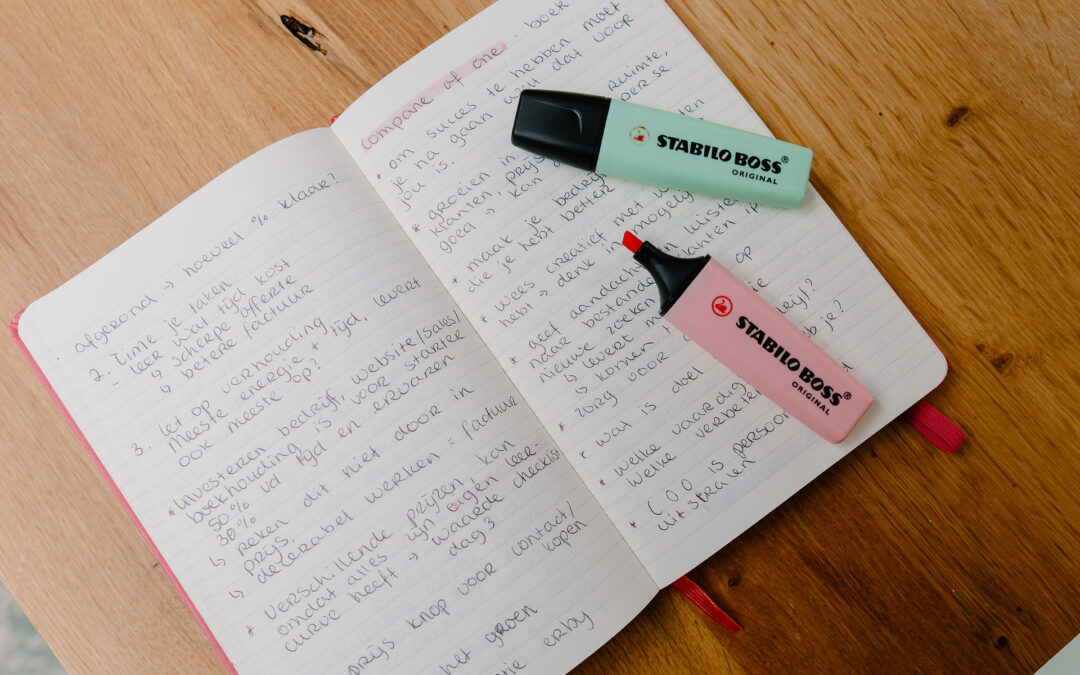 · afgerond → hoeveel % klaar?
2. Time je taken
- leer wat tijd kost
↳ scherpe offerte
↳ betere factuur
3. Let op verhouding
Meeste energie + tijd, levert
ook meeste op?
* investeren bedrijf, website/sales/
boekhouding is voor starter
50% vd tijd en ervaren
30%
↳ Reken dit niet door in
prijs.
↳ declarabel werken = factuur
* verschillende prijzen, kan
omdat alles zijn eigen leer-
curve heeft → waarde checklist
dag 3
prijs knop voor contact/
kopen
het groen
erby
compane of one - boek
* om succes te hebben moet
je na gaan wat dat voor
jou is.
* groeien in ruimte,
klanten, prijs
goed → kan
* maak je bedrijf
die je hebt beter
* wees creatief met
hebt → denk in mogelij
* geef aandacht luister
naar bestande klanten
nieuwe zoeken
↳ levert m
↳ komen op
* zorg voor
* wat is doel
* welke vaardig
welke verbeter b je?
* is persoon
uitstralen
STABILO BOSS®
ORIGINAL
STABILO BOSS®
ORIGINAL